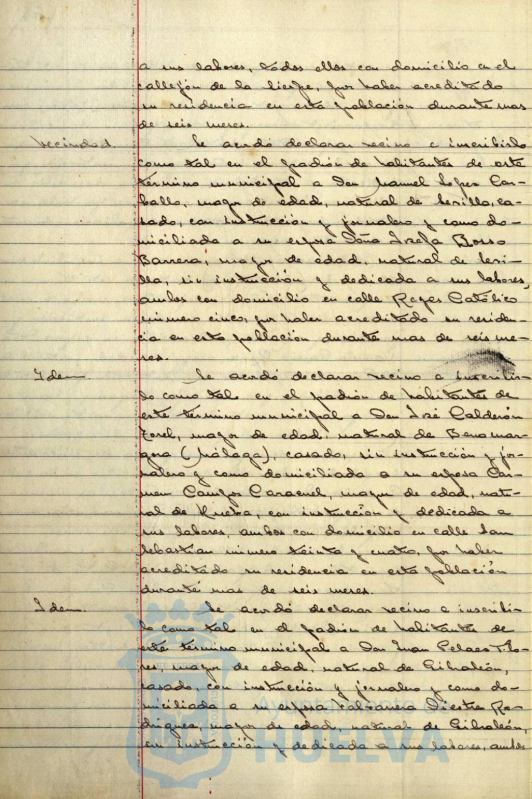 a sus labores, todos ellos con domicilio en el
callejón de la , por haber acreditado
su residencia en esta población durante mas
de seis meses.
Vecindad. Se acordó declarar vecino e inscribirlo
como tal en el padrón de habitantes de este
término municipal a Don Manuel Lopez Car-
ballo, mayor de edad, natural de Sevilla, ca-
sado, con instrucción y jornalero y como do-
miciliada a su esposa Doña Josefa Bosso
Barrera, mayor de edad, natural de Sevi-
lla, sin instrucción y dedicada a sus labores,
ambos con domicilio en calle Reyes Católico
número cinco, por haber acreditado su residen-
cia en esta población durante mas de seis me-
ses.
Idem. Se acordó declarar vecino e inscribir-
lo como tal en el padrón de habitantes de
este término municipal a Don José Calderón
, mayor de edad, natural de Benamar-
gosa (Málaga), casado, sin instrucción y jor-
nalero y como domiciliada a su esposa Car-
men Campos Caracuel, mayor de edad, natu-
ral de Huelva, con instrucción y dedicada a
sus labores, ambos con domicilio en calle San
Sebastian número treinta y cuatro, por haber
acreditado su residencia en esta población
durante mas de seis meses.
Idem. Se acordó declarar vecino e inscribir-
lo como tal en el padrón de habitantes de
este término municipal a Don Juan Pelaez Flo-
res, mayor de edad, natural de Gibraleón,
casado, con instrucción y jornalero y como do-
miciliada a su esposa Ro-
driguez, mayor de edad, natural de Gibraleón,
sin instrucción y dedicada a sus labores, ambos
HUELVA